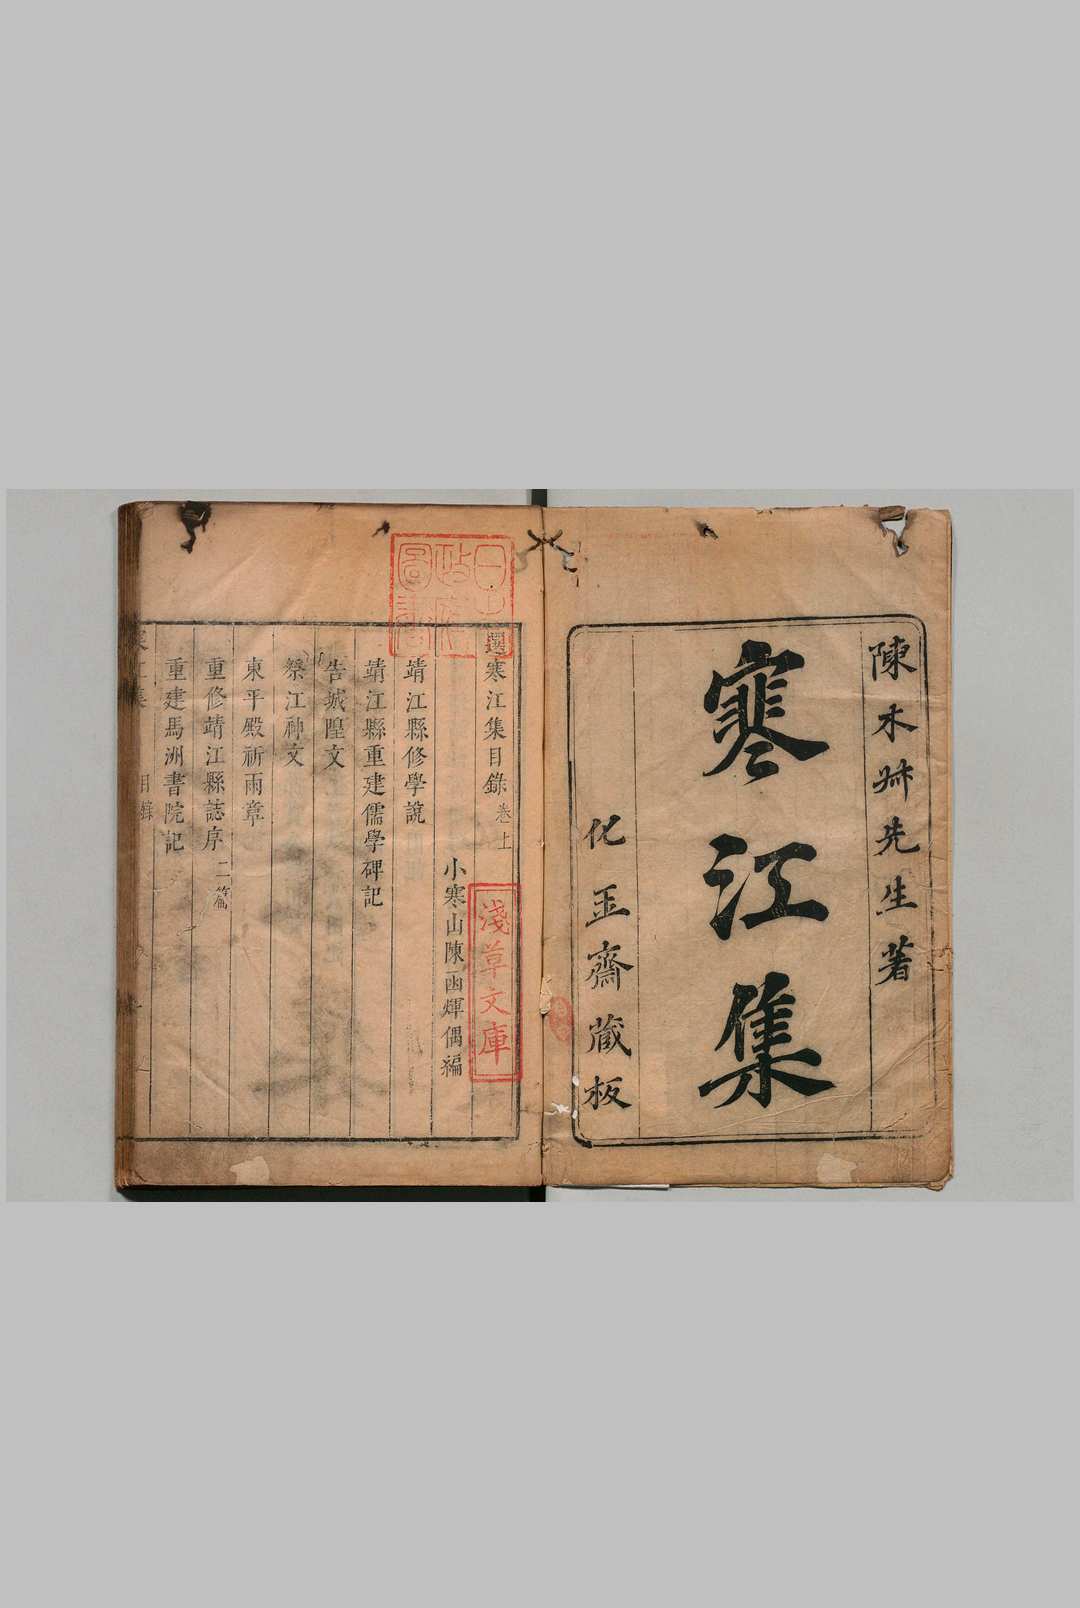 陳木叔先生著
寒江集
化玉齋藏板
選寒江集目錄 卷上
小寒山陳函煇偶編
靖江縣修學說
靖江縣重建儒學碑記
告城隍文
祭江神文
東平殿祈雨章
重修靖江縣誌序 二篇
重建馬洲書院記
寒江集 目錄
淺草文庫